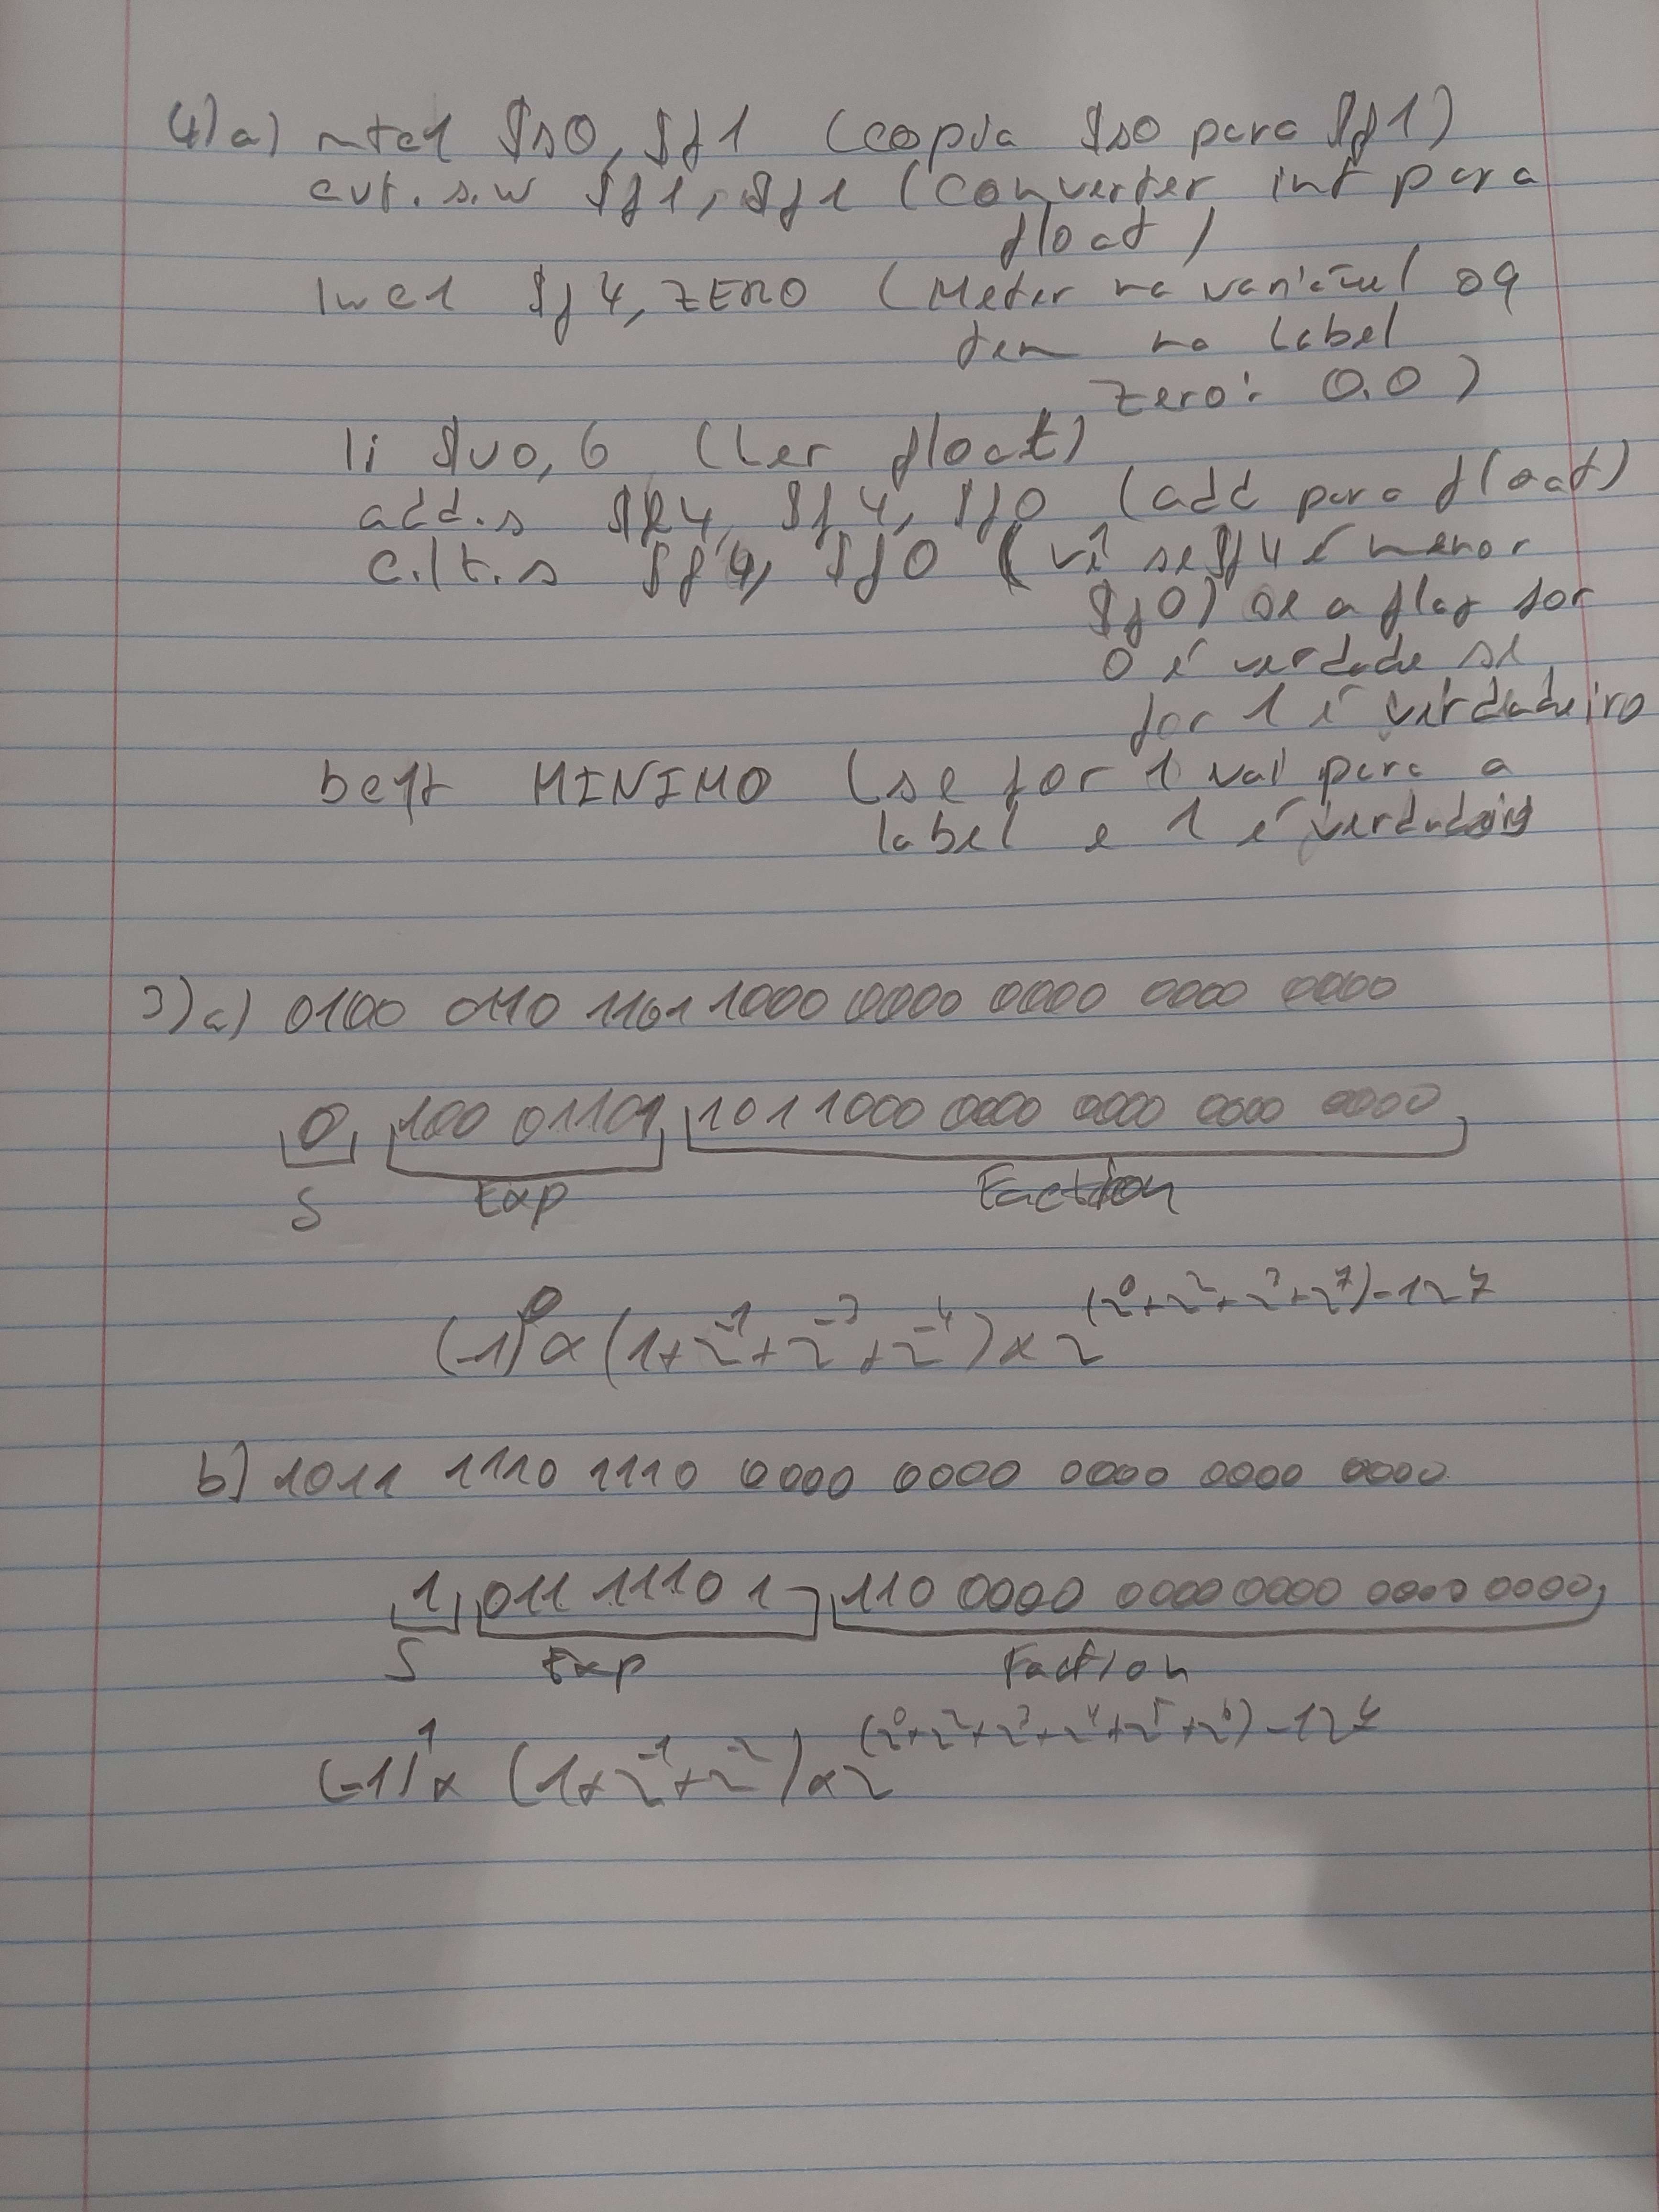 4) a) mtc1 $s0, $f1 (copia $s0 para $f1)
cvt.s.w $f1, $f1 (Converter int para
float)
lwc1 $f4, ZERO (Meter na variável oq
tem na label
zero: 0.0)
li $v0, 6 (Ler float)
add.s $f4, $f4, $f0 (add para float)
c.lt.s $f4, $f0 (vê se $f4 é menor
$f0) se a flag for
0 é verdade se
for 1 é verdadeiro
bc1t MINIMO (se for 1 vai para a
label e 1 é
3) a) 0100 0110 1101 1000 0000 0000 0000 0000
0 100 01101 1011000 0000 0000 0000 0000
S Exp Faction
(-1)^0 x (1+2^-1+2^-3+2^-4) x 2^(2^0+2^2+2^3+2^7)-127
b) 1011 1110 1110 0000 0000 0000 0000 0000
1 011 1110 1 110 0000 0000 0000 0000 0000
S Exp Faction
(-1)^1 x (1+2^-1+2^-2) x 2^(2^0+2^2+2^3+2^4+2^5+2^6)-127